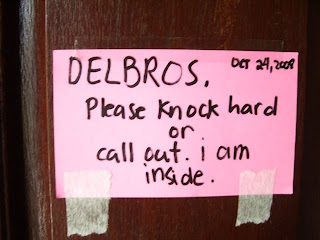 DELBROS. OCT 24, 2008
Please Knock hard
or
call out. i am
inside.